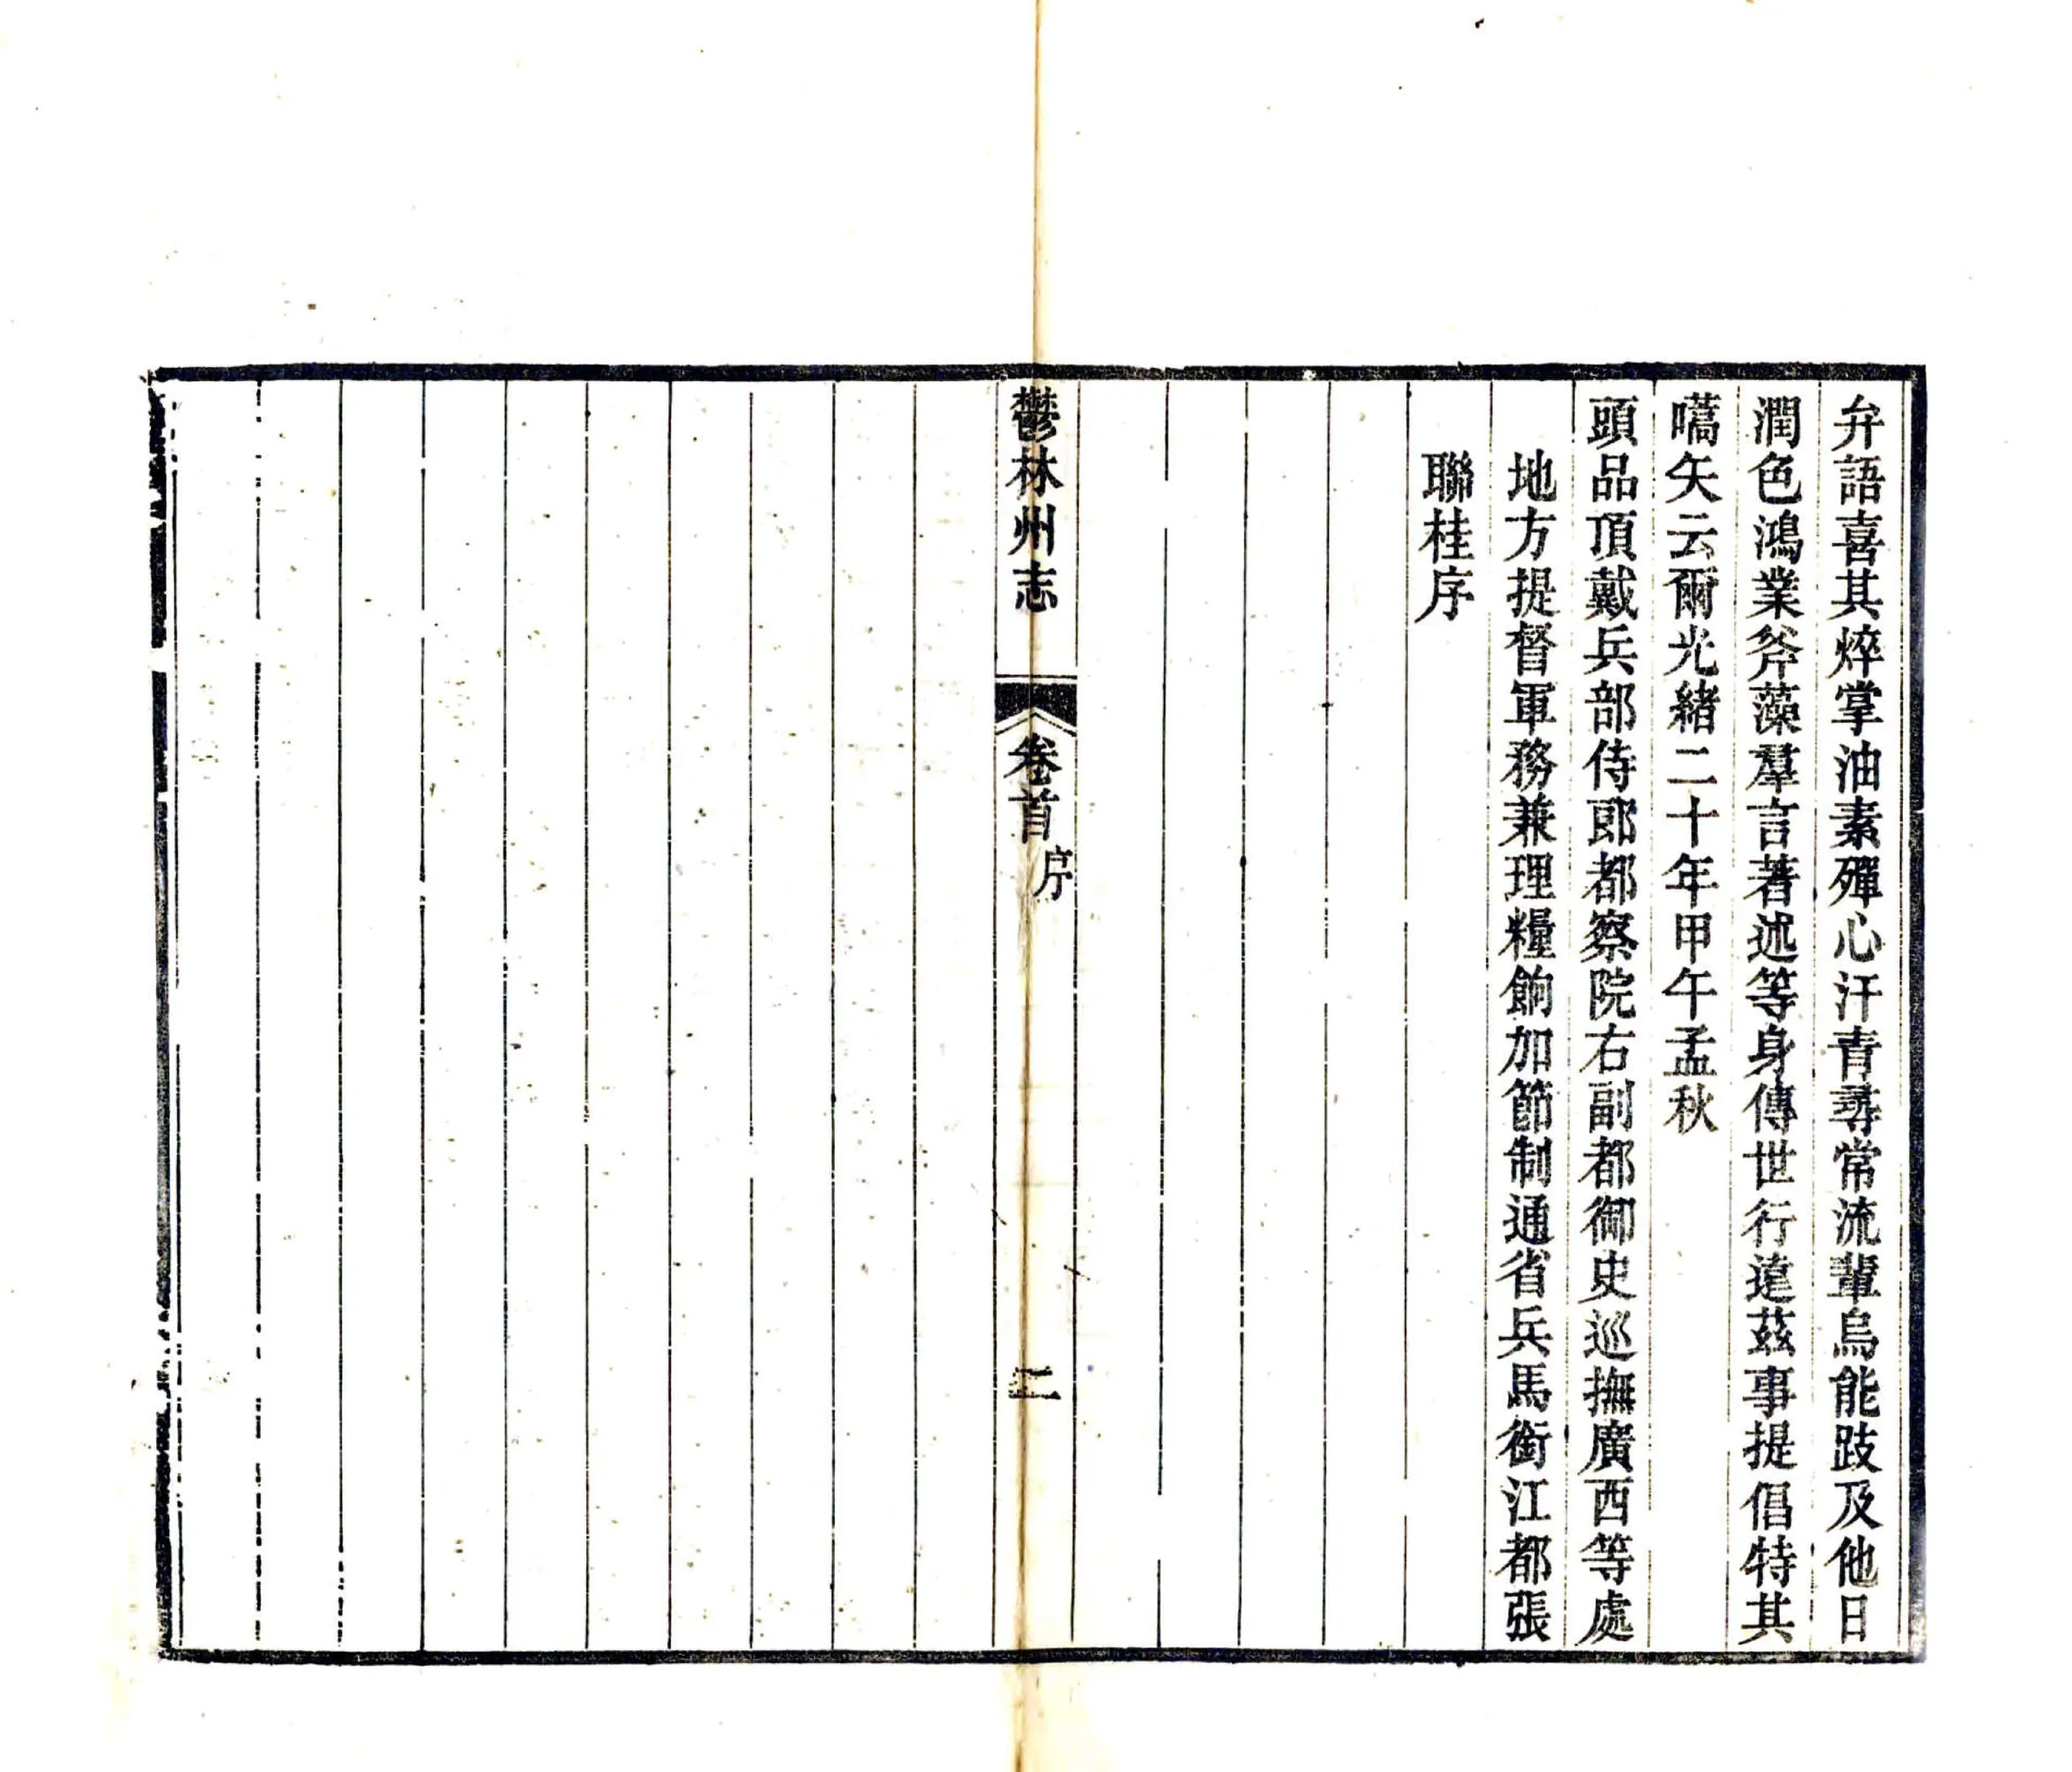 弁語喜其焠掌油素殫心汗青尋常流輩烏能跂及他日
潤色鴻業斧藻羣言著述等身傳世行遠茲事提倡特其
嚆矢云爾光緒二十年甲午孟秋
頭品頂戴兵部侍郎都察院右副都御史巡撫廣西等處
地方提督軍務兼理糧餉加節制通省兵馬銜江都張
聯桂序
鬱林州志
卷首
序
二